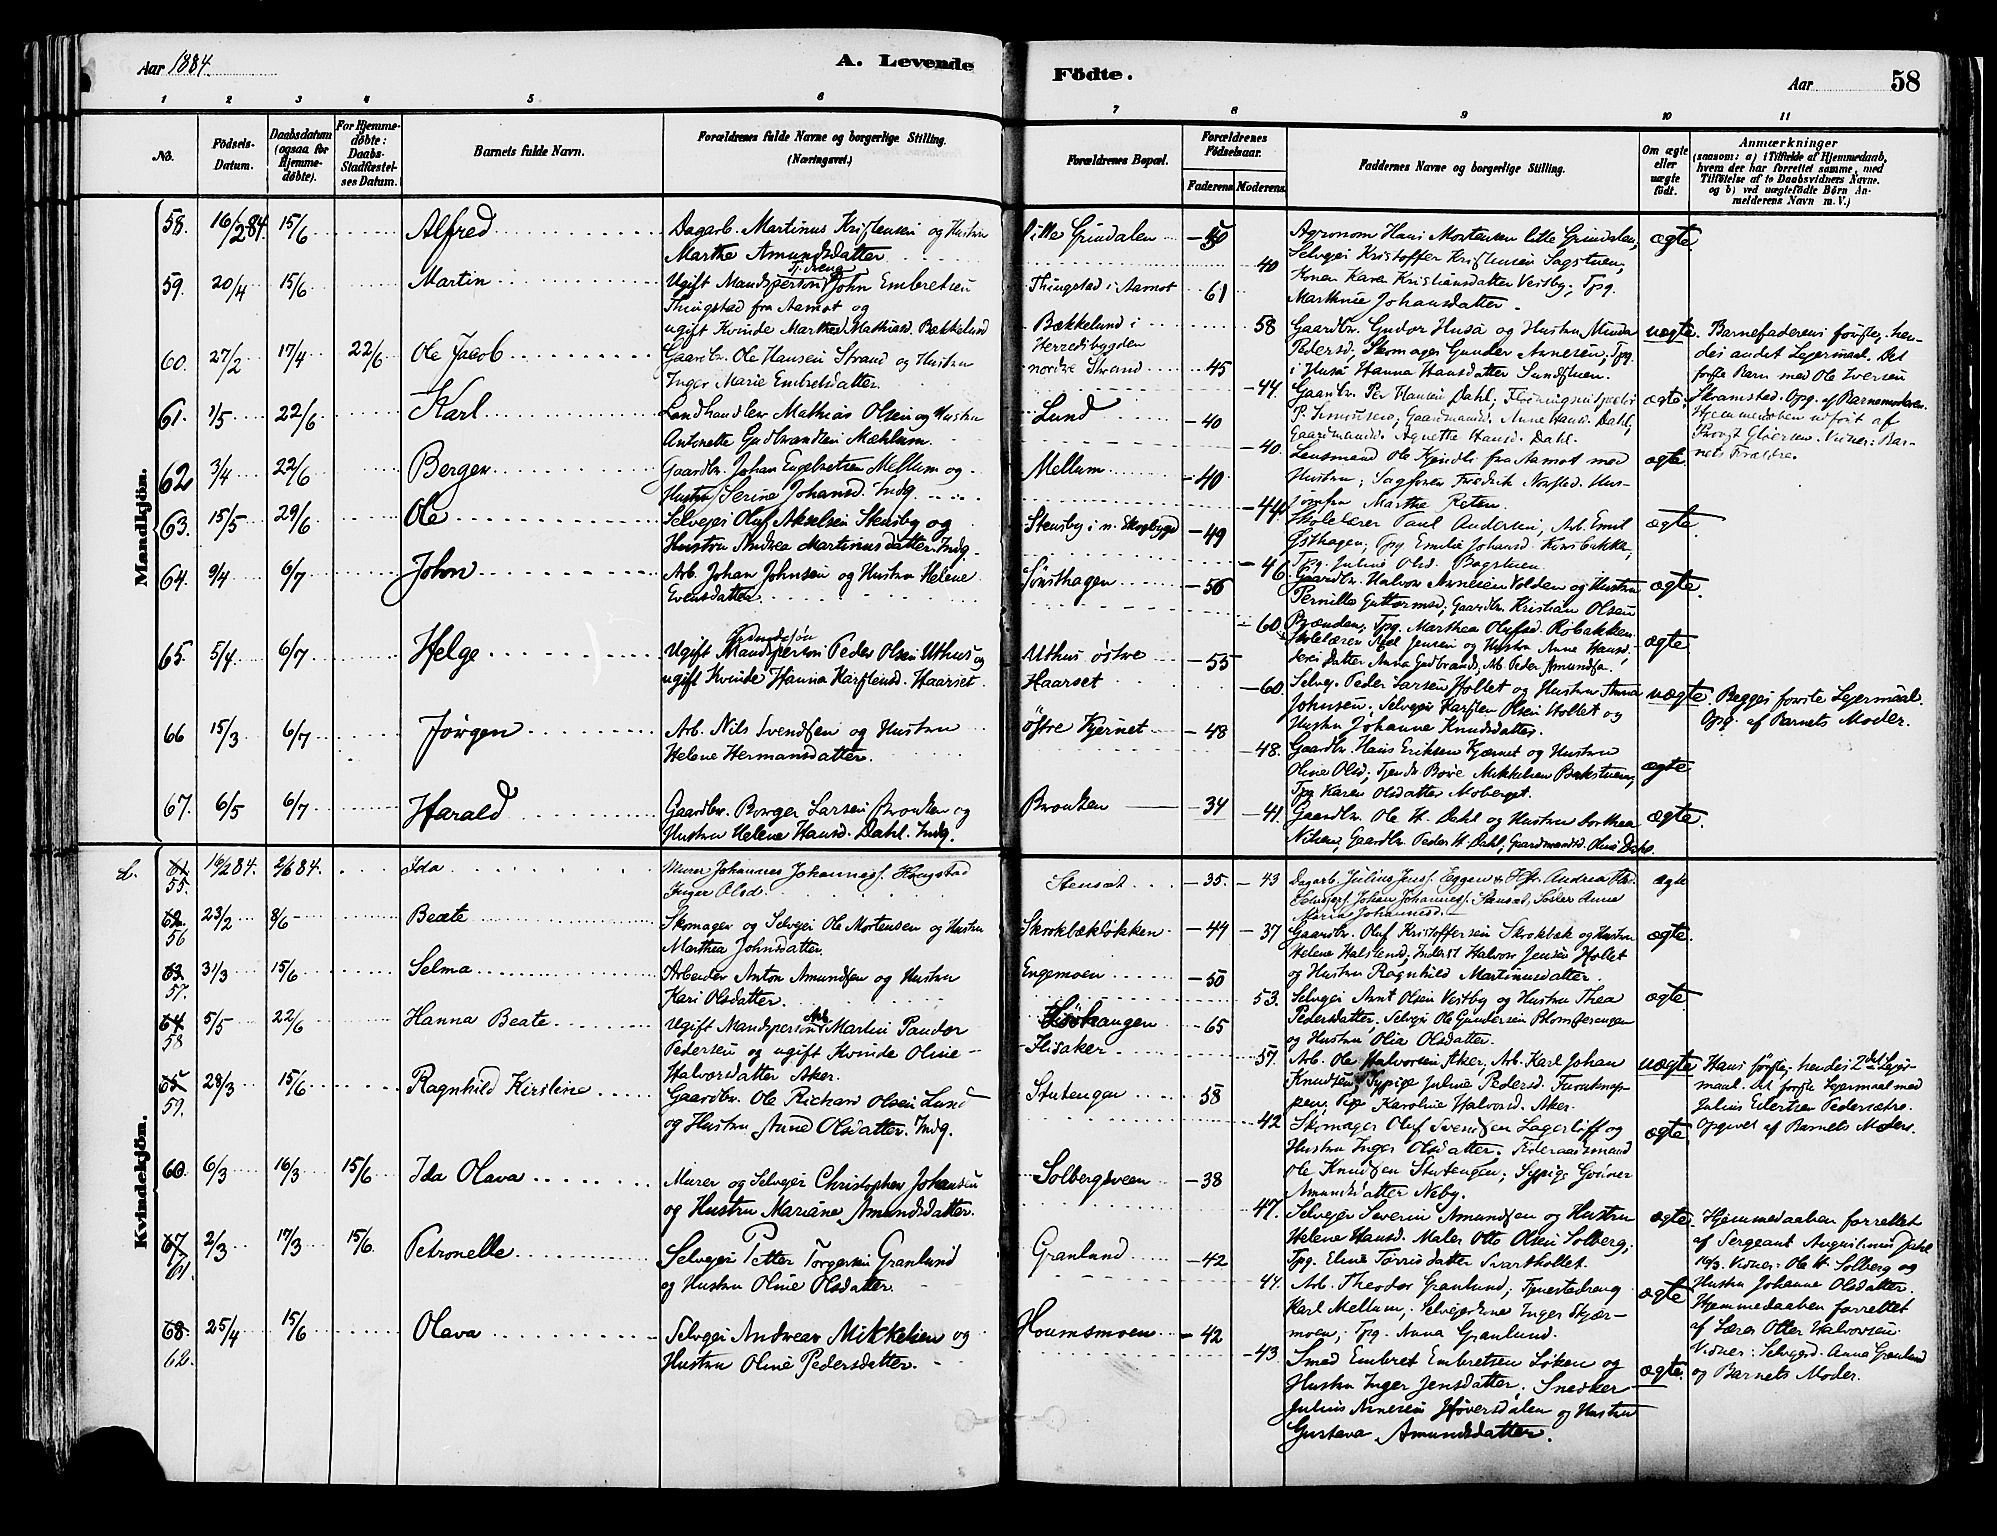 Aar 1884.
A. Levende
Födte.
Aar
58
1 2 3 4 5 6 7 8 9 10 11
No.
Födsels-Datum.
Daabsdatum (ogsaa for Hjemmedøbte).
For Hjemmedøbte: Daabs-Stadfæstelses Datum.
Barnets fulde Navn.
Forældrenes fulde Navne og borgerlige Stilling. (Næringsvei.)
Forældrenes Bopæl.
Forældrenes Födselsaar.
Faderens. Moderens.
Faddernes Navne og borgerlige Stilling.
Om ægte eller uægte født.
Anmærkninger
(saasom: a) i Tilfælde af Hjemmedaab, hvem der har forrettet samme, med Tilföielse af to Daabsvidners Navne. og b) ved uægtefödte Börn Anmelderens Navn m. V.)
Mandkjön.
58. 16/2 84. 15/6 Alfred Dagarb. Martinus Kristensen og Hustru
Marthe Amundsdatter
lille Grindalen 40
Agronom Hans Mortensen lille Grindalen,
Selveier Kristoffer Kristensen Sagstuen,
Kone Karen Kristiansdatter Vestby, Tpg.
Marthine Johansdatter.
ægte
59. 20/4 15/6 Martin Ugift Mandsperson Tj.dreng John Embretsen
Thingstad fra Aamot og
ugift Kvinde Marthea Mathiasd. Bækkelund
Thingstad i Aamot 61
Bækkelund i Herredsbygden 58
Gaardbr. Gudor Huså og Hustru Minda
Pedersd., Skomager Gunder Arnesen, Tpg.
i Huså Hanna Hansdatter Sundstuen.
uægte. Barnefaderens første, hendes andet Leiermaal. Det
første Barn med Ole Iversen
Skramstad. Opg. af Barnemoderen.
60. 27/2 17/4 22/6 Ole Jacob Gaardbr. Ole Hansen Strand og Hustru
Inger Marie Embretsdatter.
nordre Strand 45 44.
Gaardbr. Per Hansen Dahl,
Gaardmandsd. Anne Hansd. Dahl,
Gaardmandsd. Agnette Hansd. Dahl.
ægte. Hjemmedaaben udført af
Provst Gløersen. Vidner: Barnets Forældre.
61. 1/5 22/6 Karl Landhandler Mathias Olsen og Hustru
Antonette Gudbrandsen Mæhlum.
Lund 40 40.
Lensmand Ole Kjendli fra Aamot med
Hustru; Sagfører Fredrik Norsted. Hus-
jomfru Marthe Reten
ægte.
62 3/4 22/6 Bergen Gaardbr. Johan Engebretsen Mellum og
Hustru Serine Johansd. Indg.
Mellum 40 44.
Skolelærer Paul Andersen, Arb. Emil
Østhagen; Tpg. Emilie Johansd. Kinsbakke,
Tpg. Juline Olsd. Bagstuen.
ægte.
63. 15/5 29/6 Ole Selveier Oluf Akselsen Stensby og
Hustru Andrea Martinusdatter. Indg.
Stensby i n. Skogbygd 49 46
Gaardbr. Halvor Arnesen Volden og Hustru
Pernille Guttormsd.; Gaardbr. Kristian Olsen
Brænden; Tpg. Marthea Olufsd. Robakken.
ægte.
64. 9/4 6/7 John Arb. Johan Johnsen og Hustru Helene
Evensdatter.
Sønsthagen 56 60
Skolelærer Axel Jensen og Hustru Anne Hansd.
deres Datter Anna Gudbrandsd., Arb. Peder Amundsen.
ægte.
65. 5/4 6/7 Helge Ugift Mandsperson Peder Olsen Uthus og
ugift Kvinde Hanna Karstensd. Haarset
Uthus østre 55
Haarset 60
Selvei. Peder Larsen Holtet og Hustru Anna
Johnsen. Selveier Karsten Olsen Holtet og
Hustru Johanne Knudsdatter.
uægte Begges første Leiermaal.
Opg. af Barnets Moder.
66 15/3 6/7 Jørgen Arb. Nils Svendsen og Hustru
Helene Hermansdatter.
Østre Kjernet 48 48.
Gaardbr. Hans Eriksen Kjernet og Hustru
Oline Olsd; Tjendr. Bøie Mikkelsen Bakstuen,
Tpg. Karen Olsdatter Moberget.
ægte
67. 6/5 6/7 Harald Gaardbr. Borger Larsen Bronken og
Hustru Helene Hansd. Dahl. Indg.
Bronken 34 41.
Gaardbr. Ole H. Dahl og Hustru Dorthea
Nilsen, Gaardbr. Peder H. Dahl, Gaardmandsd. Oline Dahl.
ægte.
Kvindekjön.
61 55. 16/2 84. 2/6 84. Ida Murer Johannes Johanness. Haugstad
Inger Olsd.
Stensæt 35. 43
Dagarb. Julius Jenss. Eggen & Hst. Andrea
Johan Johanness. Stensæt, Søster Anne
Marie Johannesd.
ægte
62 56 23/2 8/6 Beate Skomager og Selveier Ole Mortensen og Hustru
Marthea Johnsdatter.
Skrokbækløkken 44 37
Gaardbr. Oluf Kristoffersen Skrokbæk og Hustru
Helene Halstensd., Inderst Halvor Jensen Holtet
og Hustru Ragnhild Martinusdatter.
ægte.
63 57. 31/3 15/6 Selma Arbeider Anton Amundsen og Hustru
Kari Olsdatter.
Engemoen 50 53.
Selveier Arnt Olsen Vestby og Hustru Thea
Pedersdatter. Selveier Ole Gundersen Blomsterengen
og Hustru Olia Olsdatter.
ægte
64 58 5/5 22/6 Hanna Beate Ugift Mandsperson Arb. Martin Pandor
Pedersen og ugift Kvinde Oline
Halvorsdatter Aker.
65
Flisaker 57.
Arb. Ole Halvorsen Aker, Arb. Karl Johan
Knudsen, Sypige Juline Pedersd.
Pige Karoline Halvorsd. Aker.
uægte Hans første, hendes 2det Leier-
maal. Af første Leiermaal med
Julius Eilertsen Pedersætre.
Opgivet af Barnets Moder.
65 59. 28/3 15/6 Ragnhild Kirstine Gaardbr. Ole Richard Olsen Lund
og Hustru Anne Olsdatter. Indg.
Stutengen 58 42
Skomager Oluf Svendsen Lagerliff og
Hustru Inger Olsdatter. Föderaadsmand
Ole Knudsen Stutengen; Sypige Gunner
Amundsdatter Neby.
ægte.
60. 6/3 16/3 15/6 Ida Olava Murer og Selveier Christopher Johansen
og Hustru Mariane Amundsdatter.
Solbergsveen 38 47.
Selveier Severin Amundsen og Hustru
Helene Hansd. Maler Otto Olsen Solberg,
Tpg. Eline Torrisdatter Svartholtet.
ægte. Hjemmedaaben forrettet
af Sergeant Augustinus Dahl
16/3. Vidner: Ole H. Solberg og
Hustru Johanne Olsdatter.
67 61 2/3 17/3 15/6 Petronelle Selveier Petter Torgersen Granlund
og Hustru Oline Olsdatter.
Granlund 42 44.
Arb. Theodor Granlund, Tjenestedreng
Karl Mellum, Selveierkone Inger Skjær-
moen; Tpg. Anna Granlund.
ægte Hjemmedaaben forrettet
af Lærer Otter Halvorsen
Vidner: Selveiersd. Anna Granlund
og Barnets Moder.
68 62. 25/4 15/6 Olava Selveier Andreas Mikkelsen og
Hustru Oline Pedersdatter.
Houmsmoen 42 43
Smed Embret Embretsen Løken og
Hustru Inger Jensdatter. Snedker
Julius Arnesen Høversdalen og Hustru
Gustava Amundsdatter.
ægte.